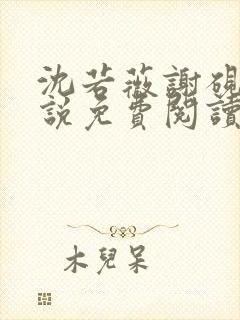 沈若薇謝硯
說免費閱讀
木兒呆